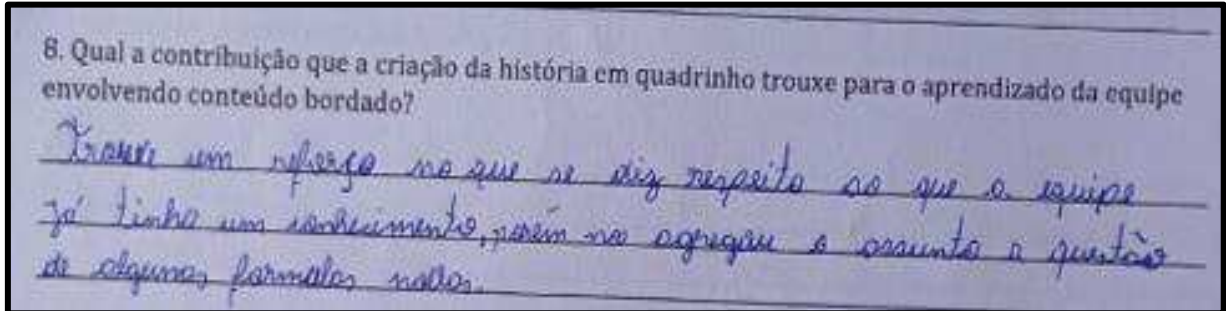 8. Qual a contribuição que a criação da história em quadrinho trouxe para o aprendizado da equipe
envolvendo conteúdo bordado?
Trouxe um reforço no que se diz respeito ao que a equipe
já tinha um conhecimento, porém no agregou o assunto a questão
de algumas formulas